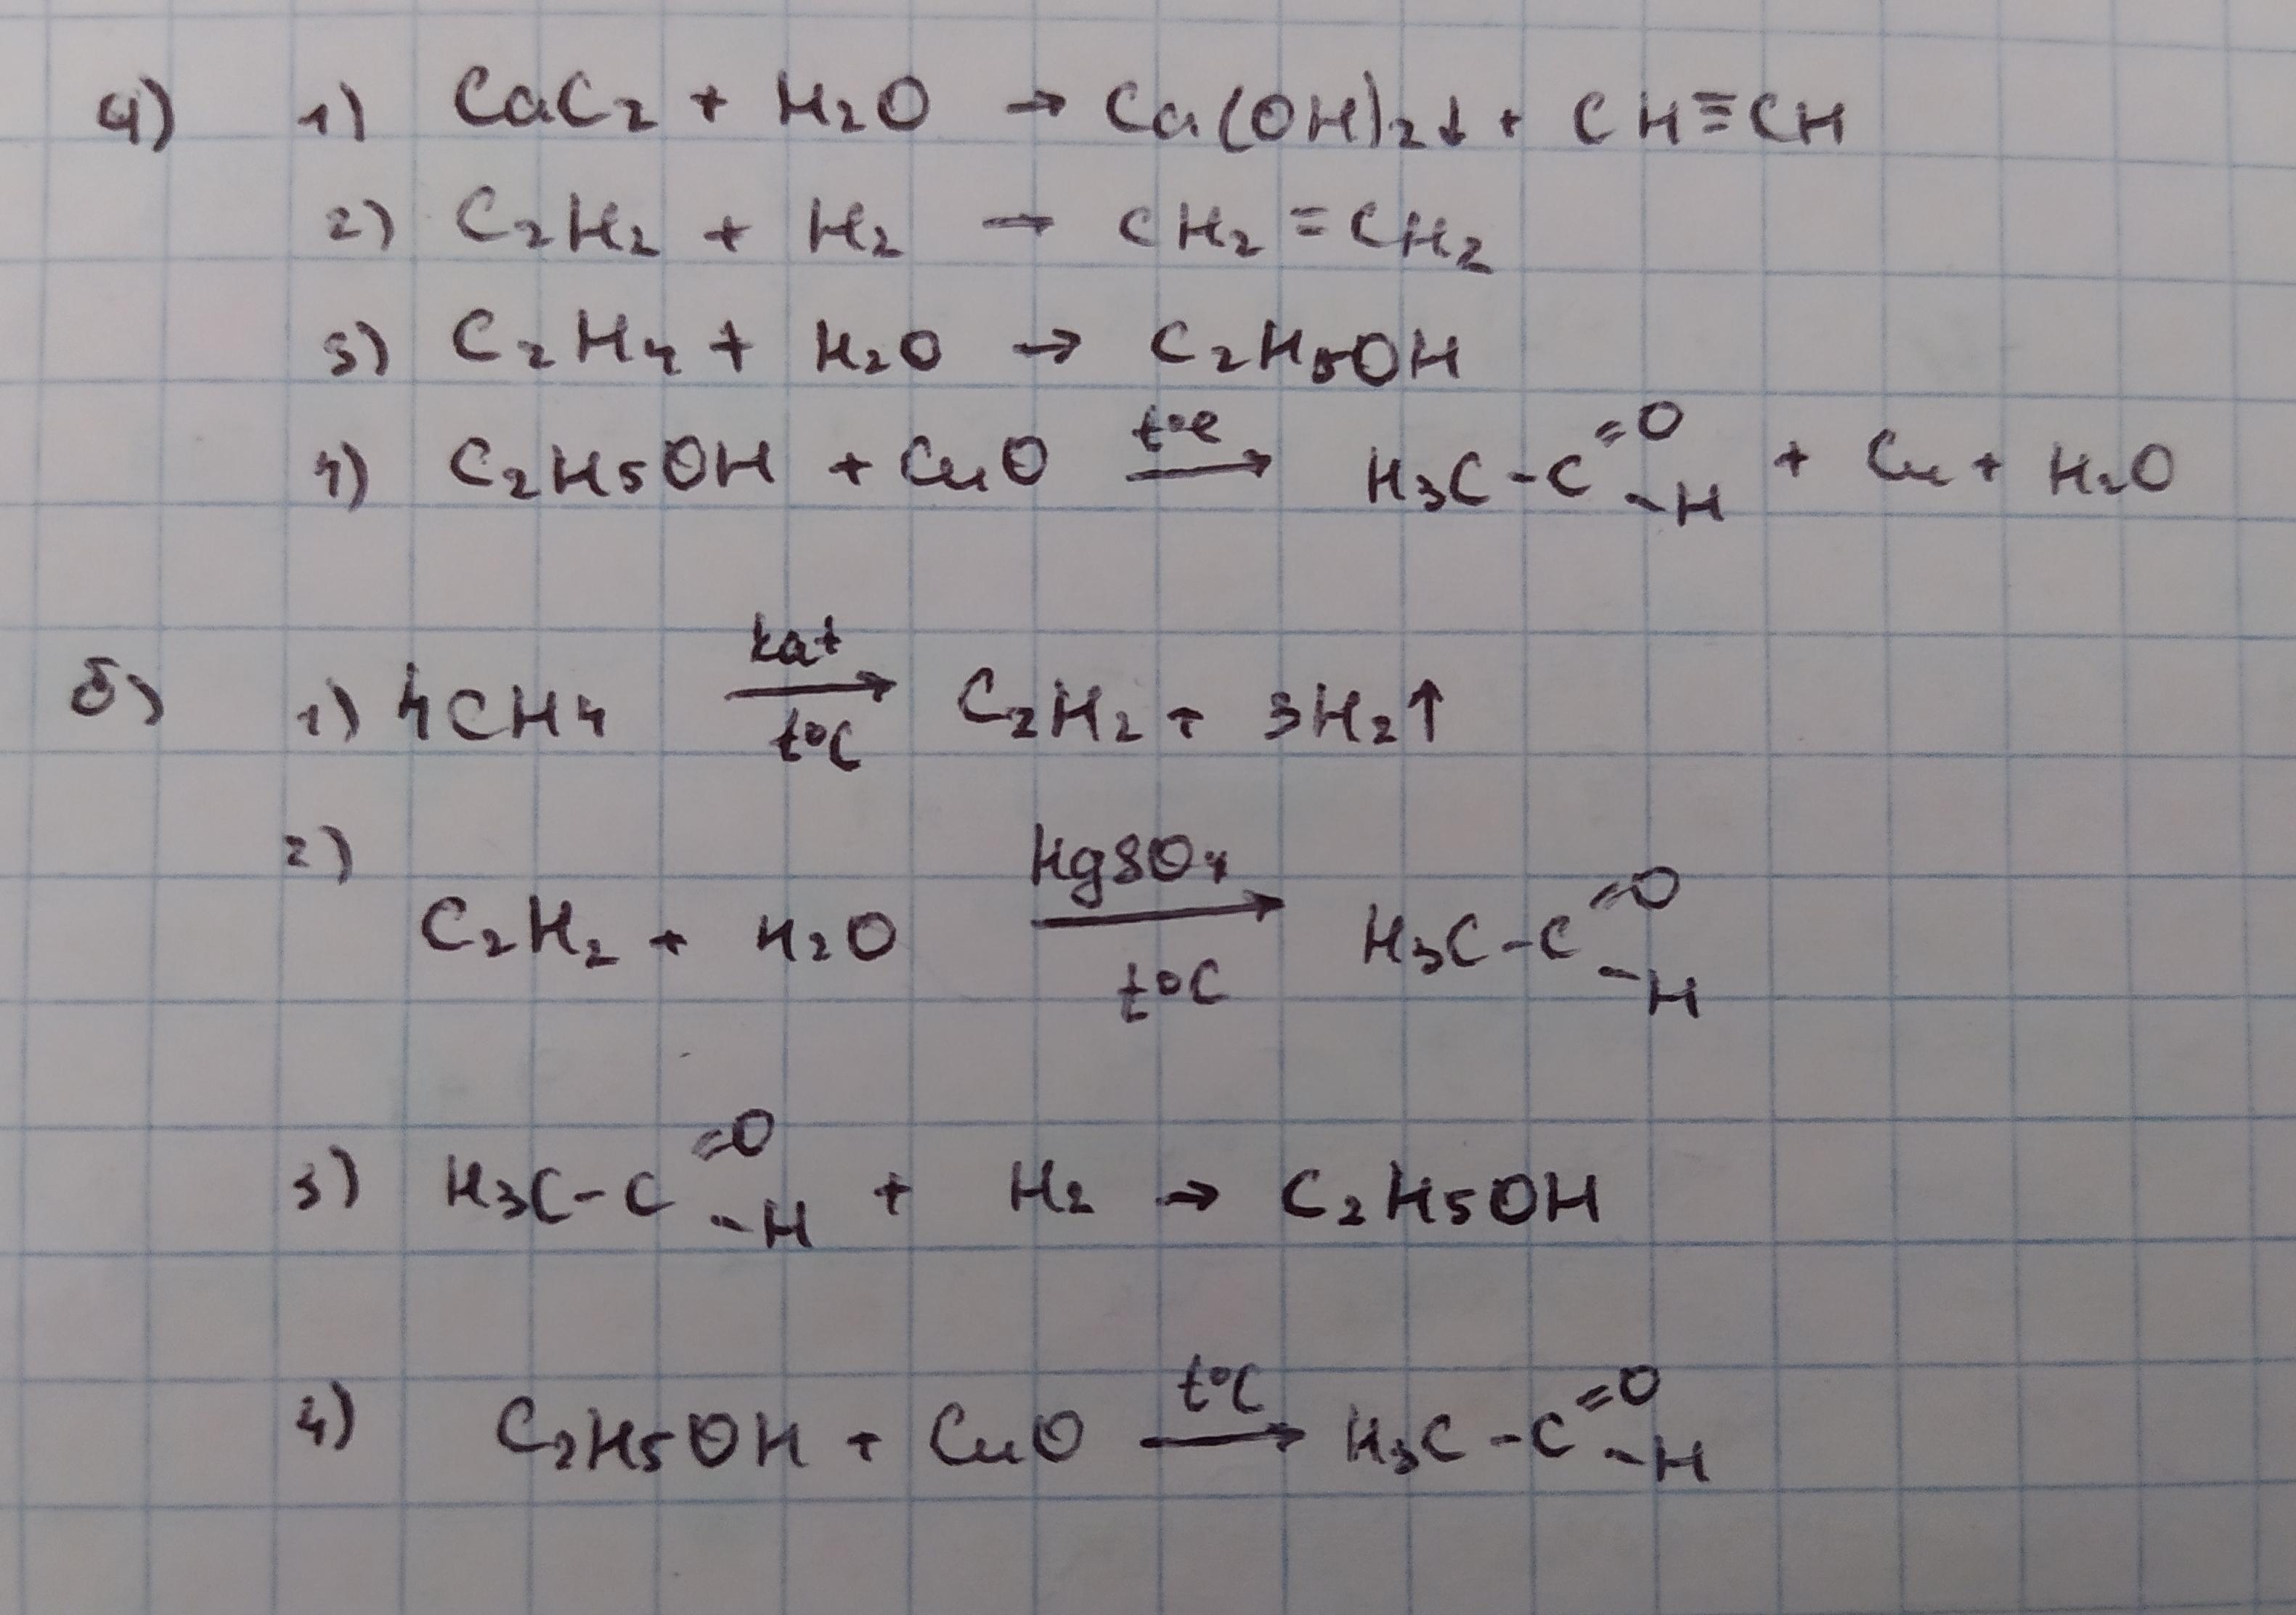 а) 1) CaC2 + H2O → Ca(OH)2↓ + CH≡CH
2) C2H2 + H2 → CH2=CH2
3) C2H4 + H2O → C2H5OH
4) C2H5OH + CuO t°C → H3C-C=O -H + Cu + H2O
б) 1) 4CH4 kat t°C → C2H2 + 3H2↑
2) C2H2 + H2O HgSO4 t°C → H3C-C=O -H
3) H3C-C=O -H + H2 → C2H5OH
4) C2H5OH + CuO t°C → H3C-C=O -H